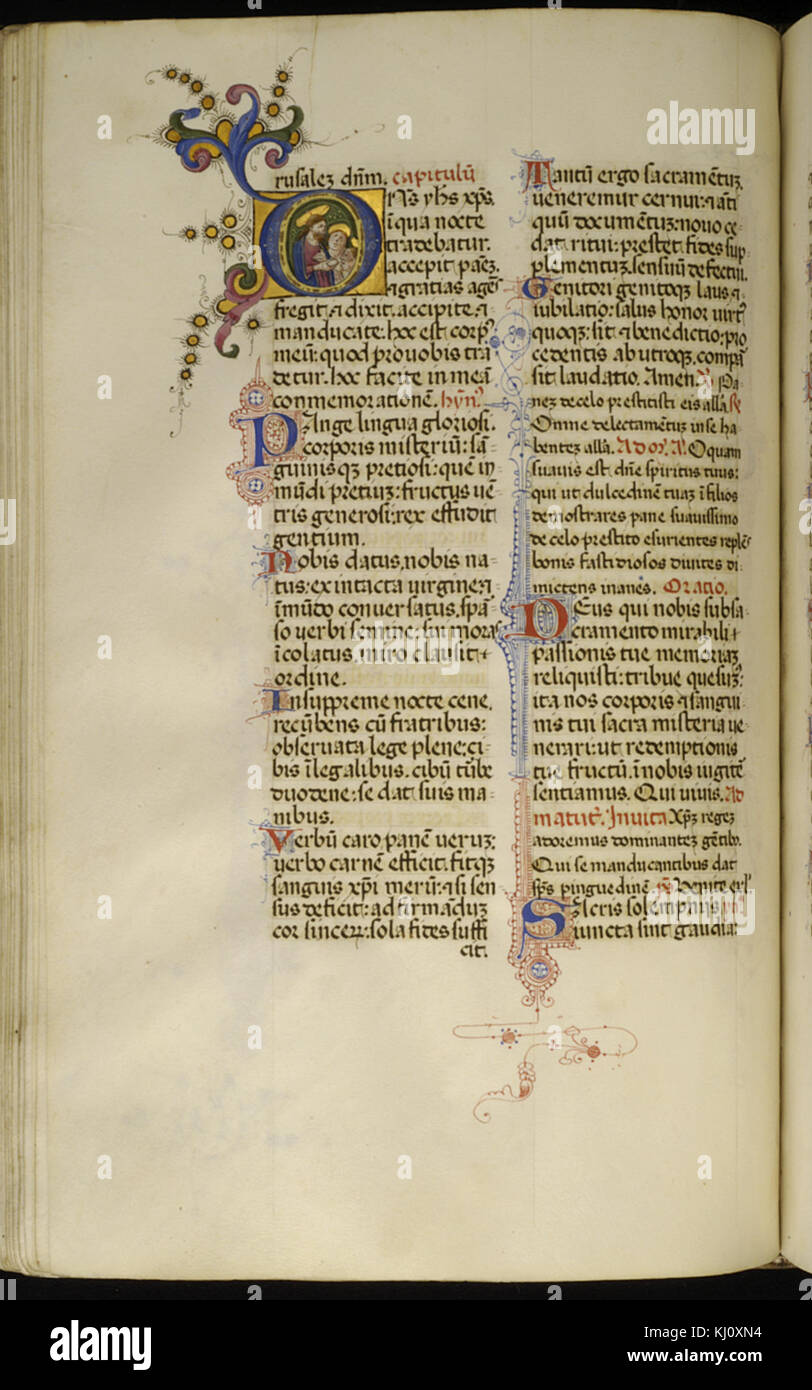 rusalez dñm. capitulũ
DÑS yħs xp̃s.
ĩqua nocte
tradebatur.
accepit panẽz.
⁊gratias agẽs
fregit.⁊ dixit. accipite.⁊
manducate. hoc est corp᾿
meũ: quod pro uobis tra
detur. hoc facite in meã
conmemorationẽ. hỹn᾿.
PAnge lingua gloriosi.
corporis misteriũ: sã-
guinis qz pretiosi: quẽ iɳ
mũdi pretiuz: fructus uẽ
tris generosi: rex effudit
gentium.
Nobis datus, nobis na-
tus: ex intacta uirgine: ⁊
ĩmũdo conuersatus. spar̃
so uerbi semine: sui moras
ĩcolatus. miro clausit
ordine.
Insuppreme nocte cene.
recũbens cũ fratribus:
obseruata lege plene: ci-
bis ĩlegalibus. cibũ turbe
duodene: se dat suis ma-
nibus.
Verbũ caro panẽ ueruz:
uerbo carnẽ efficit. fitqz
sanguis xp̃i merũ: ⁊ si sen
sus deficit: ad firmãduz
cor sincerũ: sola fides suffi
cit.
Tantũ ergo sacramẽtuz.
ueneremur cernui: ⁊ ãti
quũ documẽtuz: nouo ce-
dat ritui: prestet fides sup
plementuz. sensuũ defectui.
Genitori genitoqz laus ⁊
iubilatio: salus honor uirt᾿
quoqz: sit ⁊ benedictio: pro
cedentis ab utroqz. compar̃
sit laudatio. Amen. Pa-
nez de celo prestitisti eis allã.
Omne delectamẽtuz inse ha
bentez allã. Ad m̃. A. O quam
suauis est dñe spiritus tuus:
qui ut dulcedinẽ tuaz ĩ filios
demostrares pane suauissimo
de celo prestito esurientes replẽs
bonis fastidiosos diuites di-
mictens inanes. Oratio.
DEus qui nobis subsa
cramento mirabili.
passionis tue memoriaz
reliquisti: tribue quesuz᾿:
ita nos corporis ⁊ sangui-
nis tui sacra misteria ue
nerari: ut redemptionis
tue fructũ. ĩ nobis iugitẽ
sentiamus. Qui uiuis. Ad
matut̃. Inuita. Xp̃z regez
adoremus dominantez gẽtibȝ.
Qui se manducantibus dat
sp̃s pinguedinẽ. p̃s Uenite
SAcris solempniis
iuncta sint gaudia:
alamy
KJ0XN4
www.alamy.com